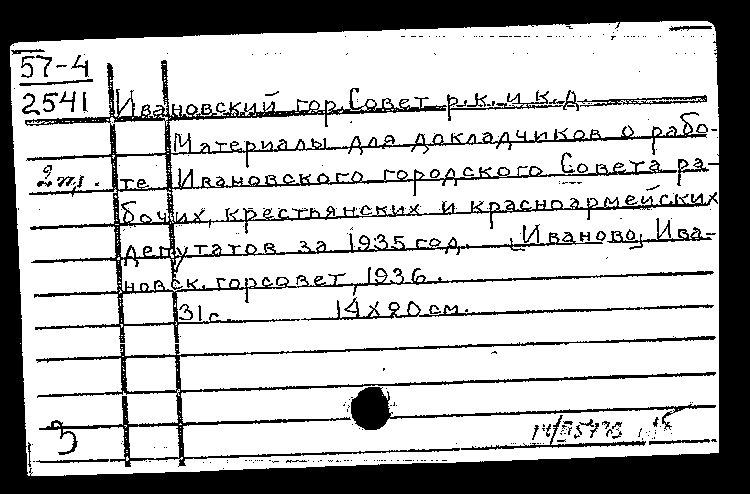 57-4
2541
Ивановский гор. Совет р.к. и к.д.
Материалы для докладчиков о рабо-
2 пр. те Ивановского городского Совета ра-
бочих, крестьянских и красноармейских
депутатов за 1935 год. [Иваново], Ива-
новск. горсовет, 1936.
31 с. 14х20 см.
З